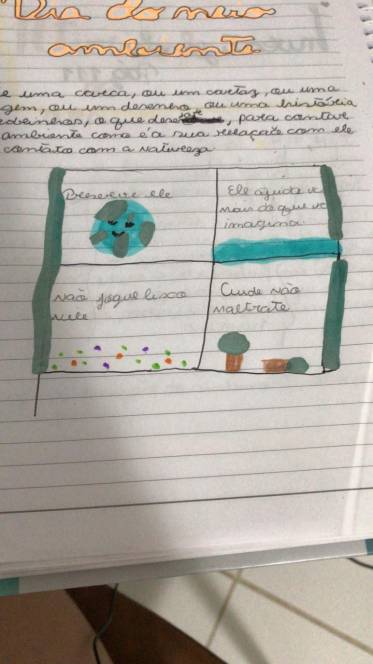 Dia do meio
ambiente
e uma carta, ou um cartaz, ou uma
gem, ou um desenho, ou uma história
adrinhos, o que , para contar
ambiente como é a sua relação com ele
contato com a natureza
Preserve ele
Ele ajuda vc
mais do que vc
imagina
Não jogue lixo
nele
Cuide não
maltrate